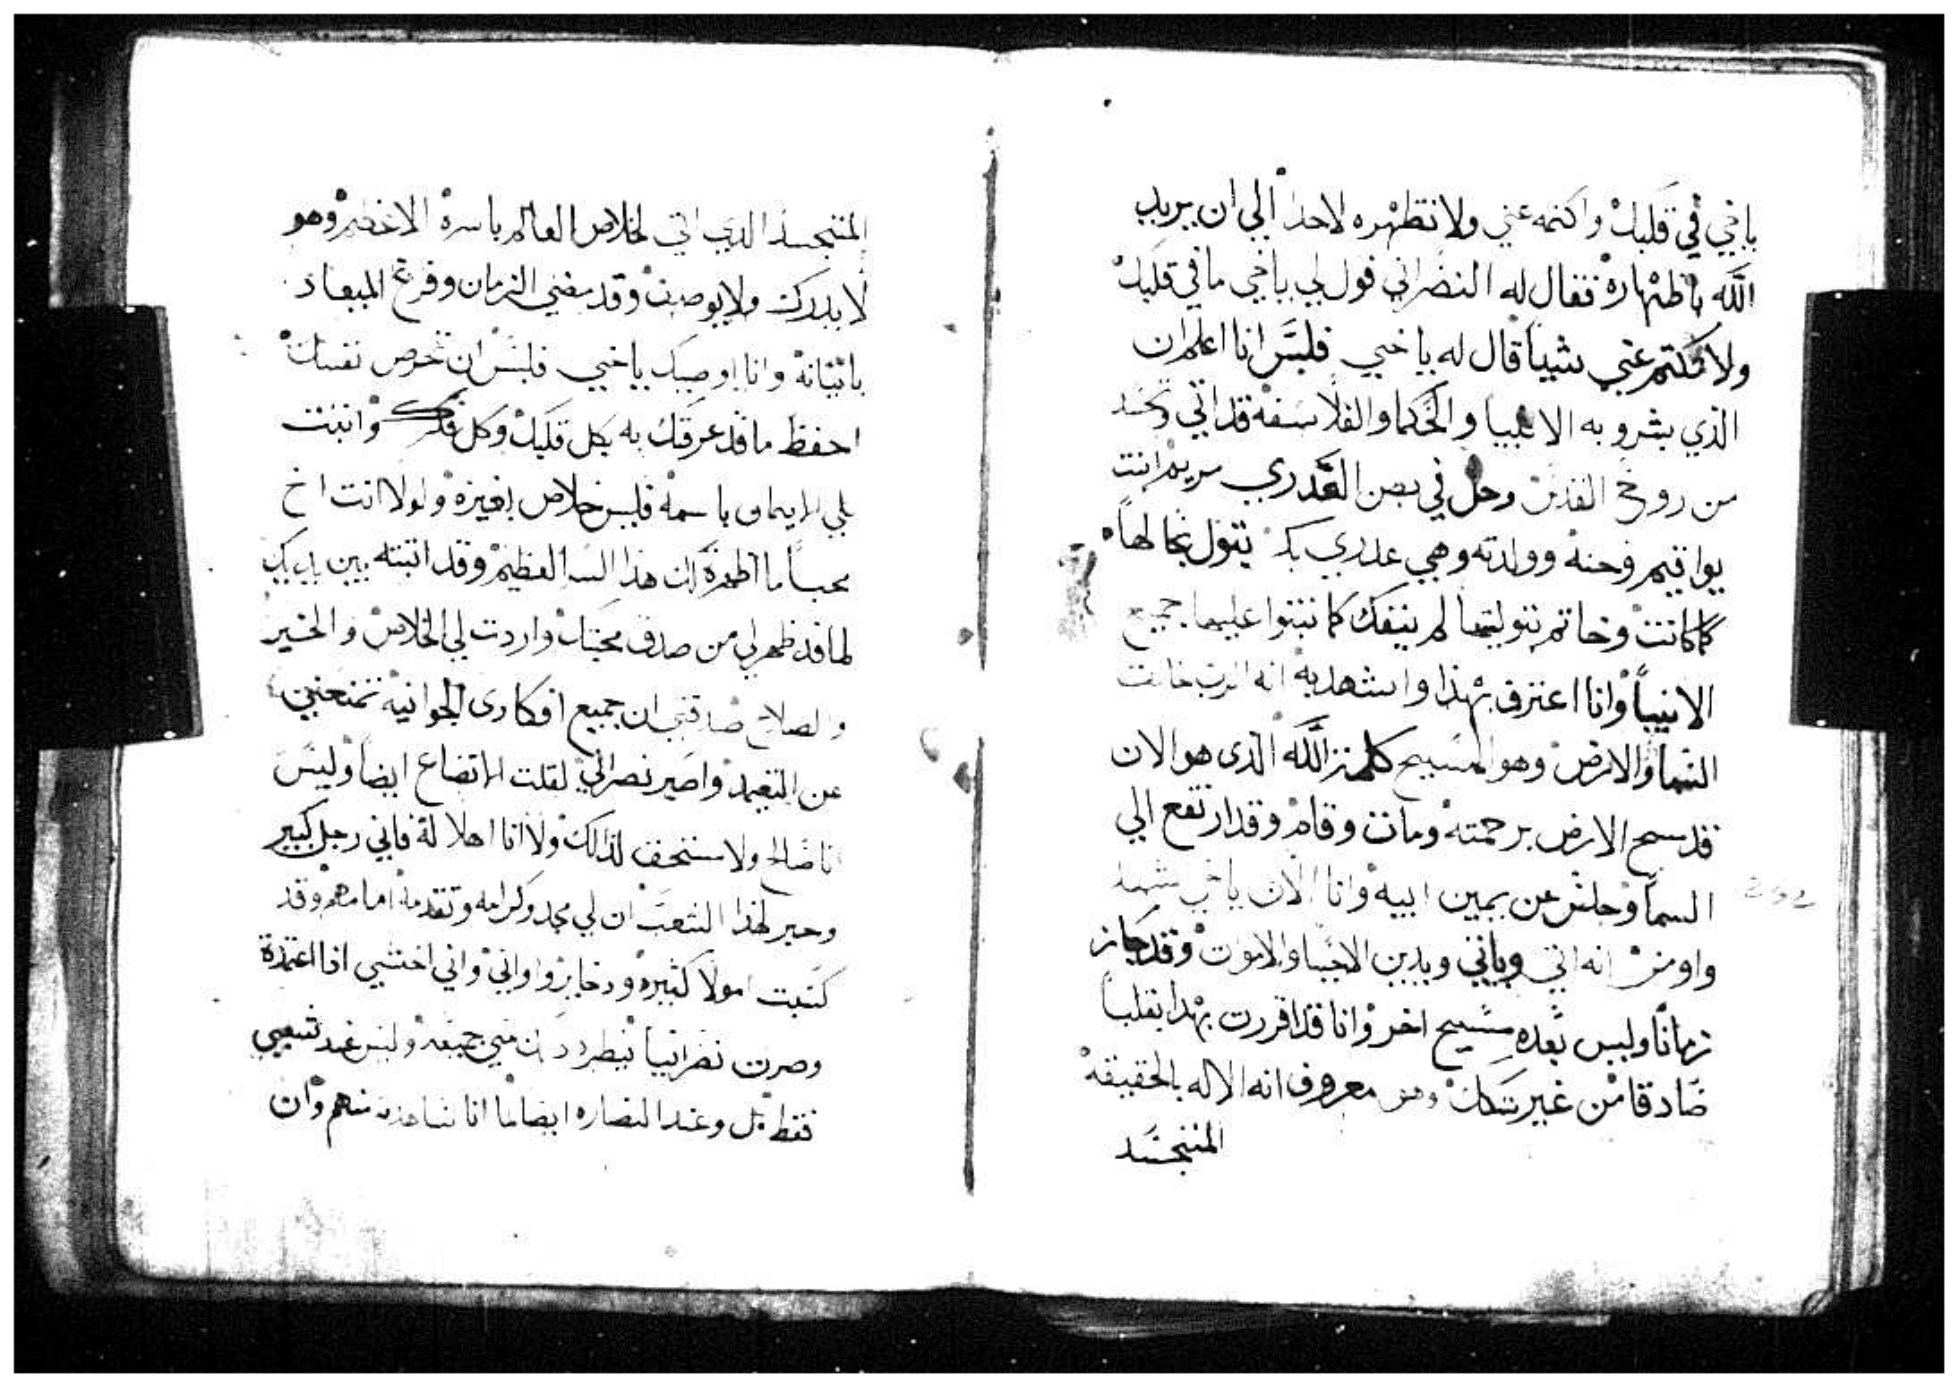 ياخي في قلبك واكتمه عني ولا تظهره لاحداً الي ان يريد
الله باظهاره فقال له النصراني قول لي ياخي ما في قلبك
ولا تكتم عني شياً قال له ياخي فلبس انا اعلم ان
الذي بشرو به الانبيا والحكما والفلاسفه قد اتي وتجسد
من روح القدس وحل في بطن العدري مريم ابنت
يواقيم وحنه وولدته وهي عدري بكر بتول بحالها
كما كانت وخاتم بتوليتها لم ينفك كما تنبوا عليها جميع
الانبيا وانا اعترف بهذا واشهد به انه الرب خالق
السما والارض وهو المسيح كلمة الله الذي هو الان
قد مسح الارض برحمته ومات وقام وقد ارتفع الي
السما وجلس عن يمين ابيه وانا الان ياخي
واومن انه اتي وياتي ويدين الاحيا والاموت وقد جاز
زماناً وليس بعده مسيح اخر وانا قد اقررت بهذا بقلباً
صادقا من غير شك وهو معروف انه الاله بالحقيقه
المتجسد
252
المتجسد الذي اتي لخلاص العالم باسره الاعظم وهو
لا يدرك ولا يوصف وقد مضي الزمان وفرغ الميعاد
باتيانه وانا اوصيك ياخي فلبس ان تحرص نفسك
احفظ ما قد عرفتك به بكل قلبك وكل فكرك واتبت
علي الايمان باسمه فليس خلاص بغيره ولولا انت اخ
محباً ما اظهرة لك هذا السر العظيم وقد اتبته بين يديك
لما قد ظهر لي من صدق محبتك واردت لي الخلاص والخير
والصلاح صدقني ان جميع افكاري الجوانيه تمنعني
عن التعميد واصير نصراني لقلت الاتضاع ايضاً وليس
انا صالح ولا مستحق لذالك ولا انا اهلا له فاني رجل كبير
وحبر لهذا الشعب ان لي مجد وكرامه وتقدمة امامهم وقد
كسبت امولا كثيره ودخاير واواني واني اختشي اذا اعتمدة
وصرت نصرانياً من جميعه وليس عند شعبي
فقط بل وعند النصاره ايضا ما انا شاهده منهم وان